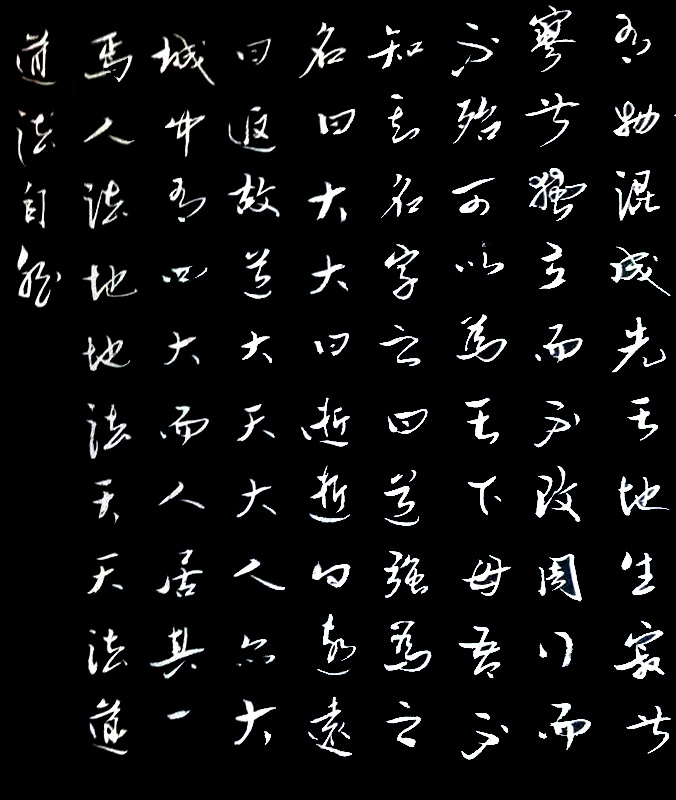 有物混成先天地生寂兮
寥兮獨立而不改周行而
不殆可以為天下母吾不
知其名字之曰道強為之
名曰大大曰逝逝曰遠遠
曰返故道大天大人亦大
域中有四大而人居其一
焉人法地地法天天法道
道法自然